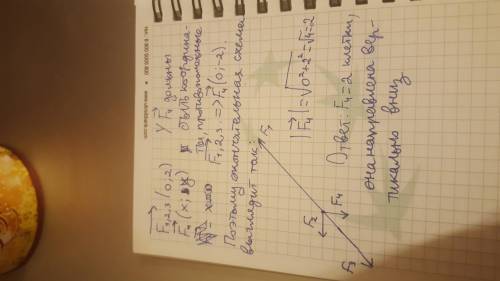 F₁,₂,₃ (0; 2)
У F₄ должны
F₄ (x; y)
быть координа-
x=0
ты, противоположные
F₁,₂,₃. => F₄ (0; -2)
Поэтому окончательная схема
выглядит так:
F₁
F₂
F₄
F₃
|F₄| = √0²+2² = √4 = 2
Ответ: F₄ = 2 клетки,
она направлена вер-
тикально вниз